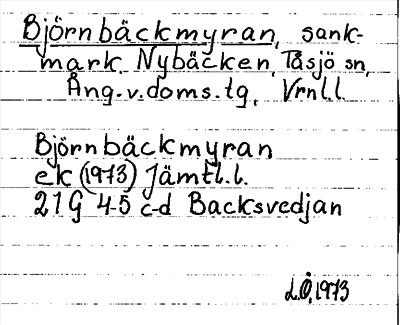 Björnbäckmyran, sank-
mark. Nybäcken, Tåsjö sn,
Ång.v.doms.tg, Vrnl.l.
Björnbäckmyran
ek (1973) Jämtl.l.
21 G 4-5 c-d Backsvedjan
L.Ö, 1973